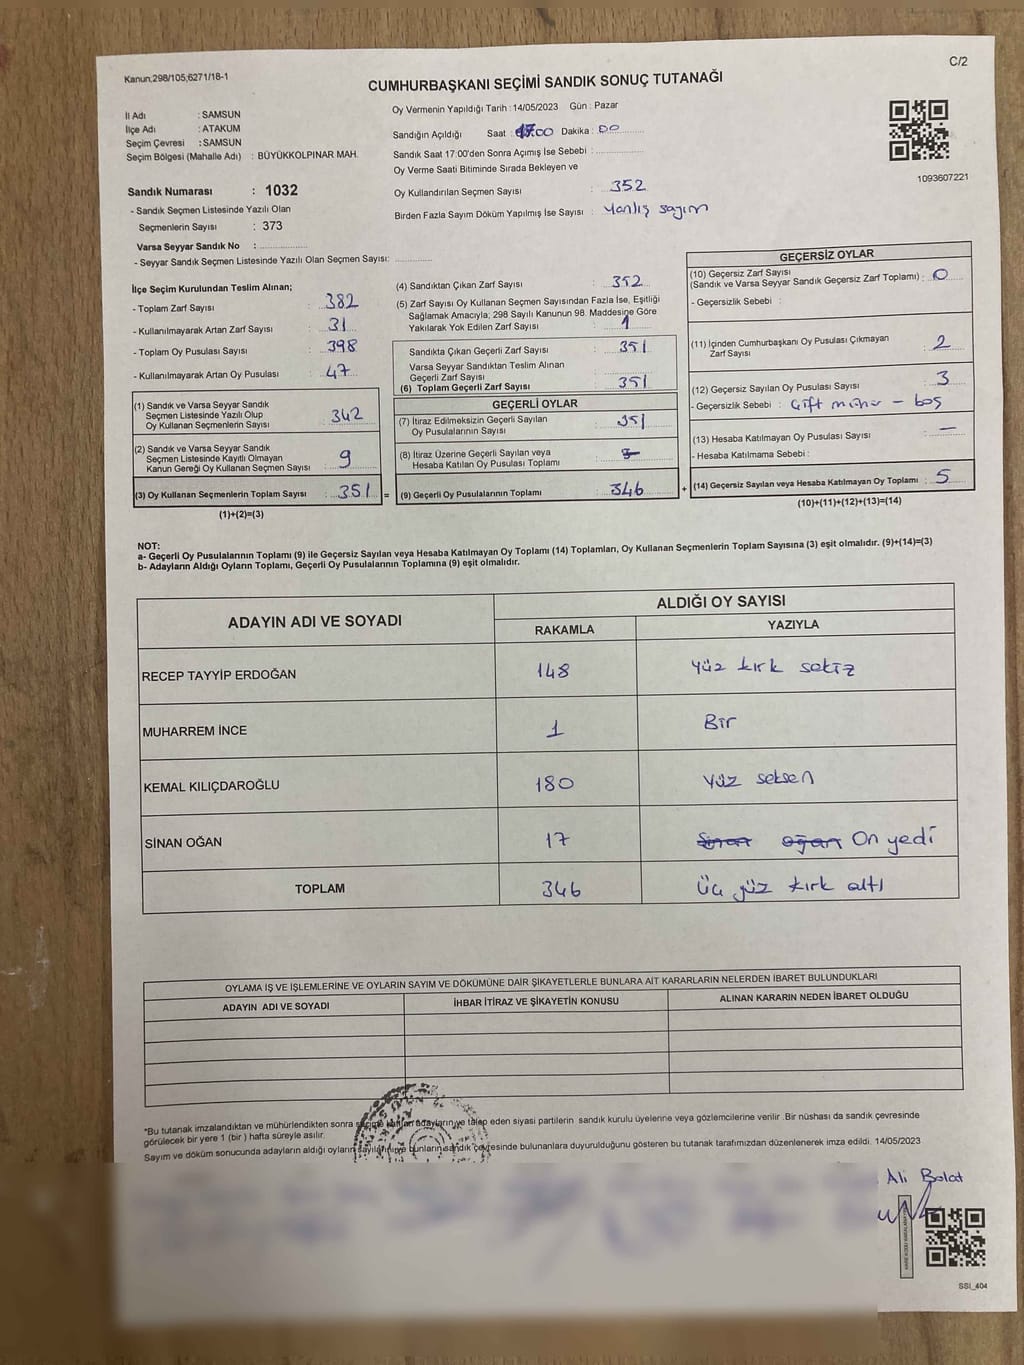 Kanun;298/105;6271/18-1
C/2
CUMHURBAŞKANI SEÇİMİ SANDIK SONUÇ TUTANAĞI
İl Adı : SAMSUN
İlçe Adı : ATAKUM
Seçim Çevresi : SAMSUN
Seçim Bölgesi (Mahalle Adı) : BÜYÜKKOLPINAR MAH.
Sandık Numarası : 1032
- Sandık Seçmen Listesinde Yazılı Olan
Seçmenlerin Sayısı : 373
Varsa Seyyar Sandık No :
- Seyyar Sandık Seçmen Listesinde Yazılı Olan Seçmen Sayısı:
Oy Vermenin Yapıldığı Tarih : 14/05/2023 Gün : Pazar
Sandığın Açıldığı Saat : 17.00 Dakika : 00
Sandık Saat 17:00'den Sonra Açımış İse Sebebi :
Oy Verme Saati Bitiminde Sırada Bekleyen ve
Oy Kullandırılan Seçmen Sayısı : 352
Birden Fazla Sayım Döküm Yapılmış İse Sayısı : Yanlış sayım
1093607221
İlçe Seçim Kurulundan Teslim Alınan;
- Toplam Zarf Sayısı : 382
- Kullanılmayarak Artan Zarf Sayısı : 31
- Toplam Oy Pusulası Sayısı : 398
- Kullanılmayarak Artan Oy Pusulası : 47
(1) Sandık ve Varsa Seyyar Sandık
Seçmen Listesinde Yazılı Olup
Oy Kullanan Seçmenlerin Sayısı : 342
(2) Sandık ve Varsa Seyyar Sandık
Seçmen Listesinde Kayıtlı Olmayan
Kanun Gereği Oy Kullanan Seçmen Sayısı : 9
(3) Oy Kullanan Seçmenlerin Toplam Sayısı : 351 =
(1)+(2)=(3)
(4) Sandıktan Çıkan Zarf Sayısı : 352
(5) Zarf Sayısı Oy Kullanan Seçmen Sayısından Fazla İse, Eşitliği
Sağlamak Amacıyla; 298 Sayılı Kanunun 98. Maddesine Göre
Yakılarak Yok Edilen Zarf Sayısı : 1
Sandıkta Çıkan Geçerli Zarf Sayısı : 351
Varsa Seyyar Sandıktan Teslim Alınan
Geçerli Zarf Sayısı :
(6) Toplam Geçerli Zarf Sayısı : 351
GEÇERLİ OYLAR
(7) İtiraz Edilmeksizin Geçerli Sayılan
Oy Pusulalarının Sayısı : 351
(8) İtiraz Üzerine Geçerli Sayılan veya
Hesaba Katılan Oy Pusulası Toplamı :
(9) Geçerli Oy Pusulalarının Toplamı : 346 +
GEÇERSİZ OYLAR
(10) Geçersiz Zarf Sayısı
(Sandık ve Varsa Seyyar Sandık Geçersiz Zarf Toplamı) : 0
- Geçersizlik Sebebi :
(11) İçinden Cumhurbaşkanı Oy Pusulası Çıkmayan
Zarf Sayısı : 2
(12) Geçersiz Sayılan Oy Pusulası Sayısı : 3
- Geçersizlik Sebebi : Çift mühür - boş
(13) Hesaba Katılmayan Oy Pusulası Sayısı : -
- Hesaba Katılmama Sebebi :
(14) Geçersiz Sayılan veya Hesaba Katılmayan Oy Toplamı : 5
(10)+(11)+(12)+(13)=(14)
NOT:
a- Geçerli Oy Pusulalarının Toplamı (9) ile Geçersiz Sayılan veya Hesaba Katılmayan Oy Toplamı (14) Toplamları, Oy Kullanan Seçmenlerin Toplam Sayısına (3) eşit olmalıdır. (9)+(14)=(3)
b- Adayların Aldığı Oyların Toplamı, Geçerli Oy Pusulalarının Toplamına (9) eşit olmalıdır.
ADAYIN ADI VE SOYADI ALDIĞI OY SAYISI
RAKAMLA YAZIYLA
RECEP TAYYİP ERDOĞAN 148 Yüz kırk sekiz
MUHARREM İNCE 1 Bir
KEMAL KILIÇDAROĞLU 180 Yüz seksen
SİNAN OĞAN 17 Sinan oğan On yedi
TOPLAM 346 Üç yüz kırk altı
OYLAMA İŞ VE İŞLEMLERİNE VE OYLARIN SAYIM VE DÖKÜMÜNE DAİR ŞİKAYETLERLE BUNLARA AİT KARARLARIN NELERDEN İBARET BULUNDUKLARI
ADAYIN ADI VE SOYADI İHBAR İTİRAZ VE ŞİKAYETİN KONUSU ALINAN KARARIN NEDEN İBARET OLDUĞU
*Bu tutanak imzalandıktan ve mühürlendikten sonra seçime katılan adayların ve talep eden siyasi partilerin sandık kurulu üyelerine veya gözlemcilerine verilir .Bir nüshası da sandık çevresinde
görülecek bir yere 1 (bir ) hafta süreyle asılır.
Sayım ve döküm sonucunda adayların aldığı oyların sayılarını ve bunların sandık çevresinde bulunanlara duyurulduğunu gösteren bu tutanak tarafımızdan düzenlenerek imza edildi. 14/05/2023
Ali Bolat
SSI_404